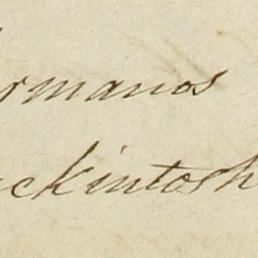 rmanos
ckintosh